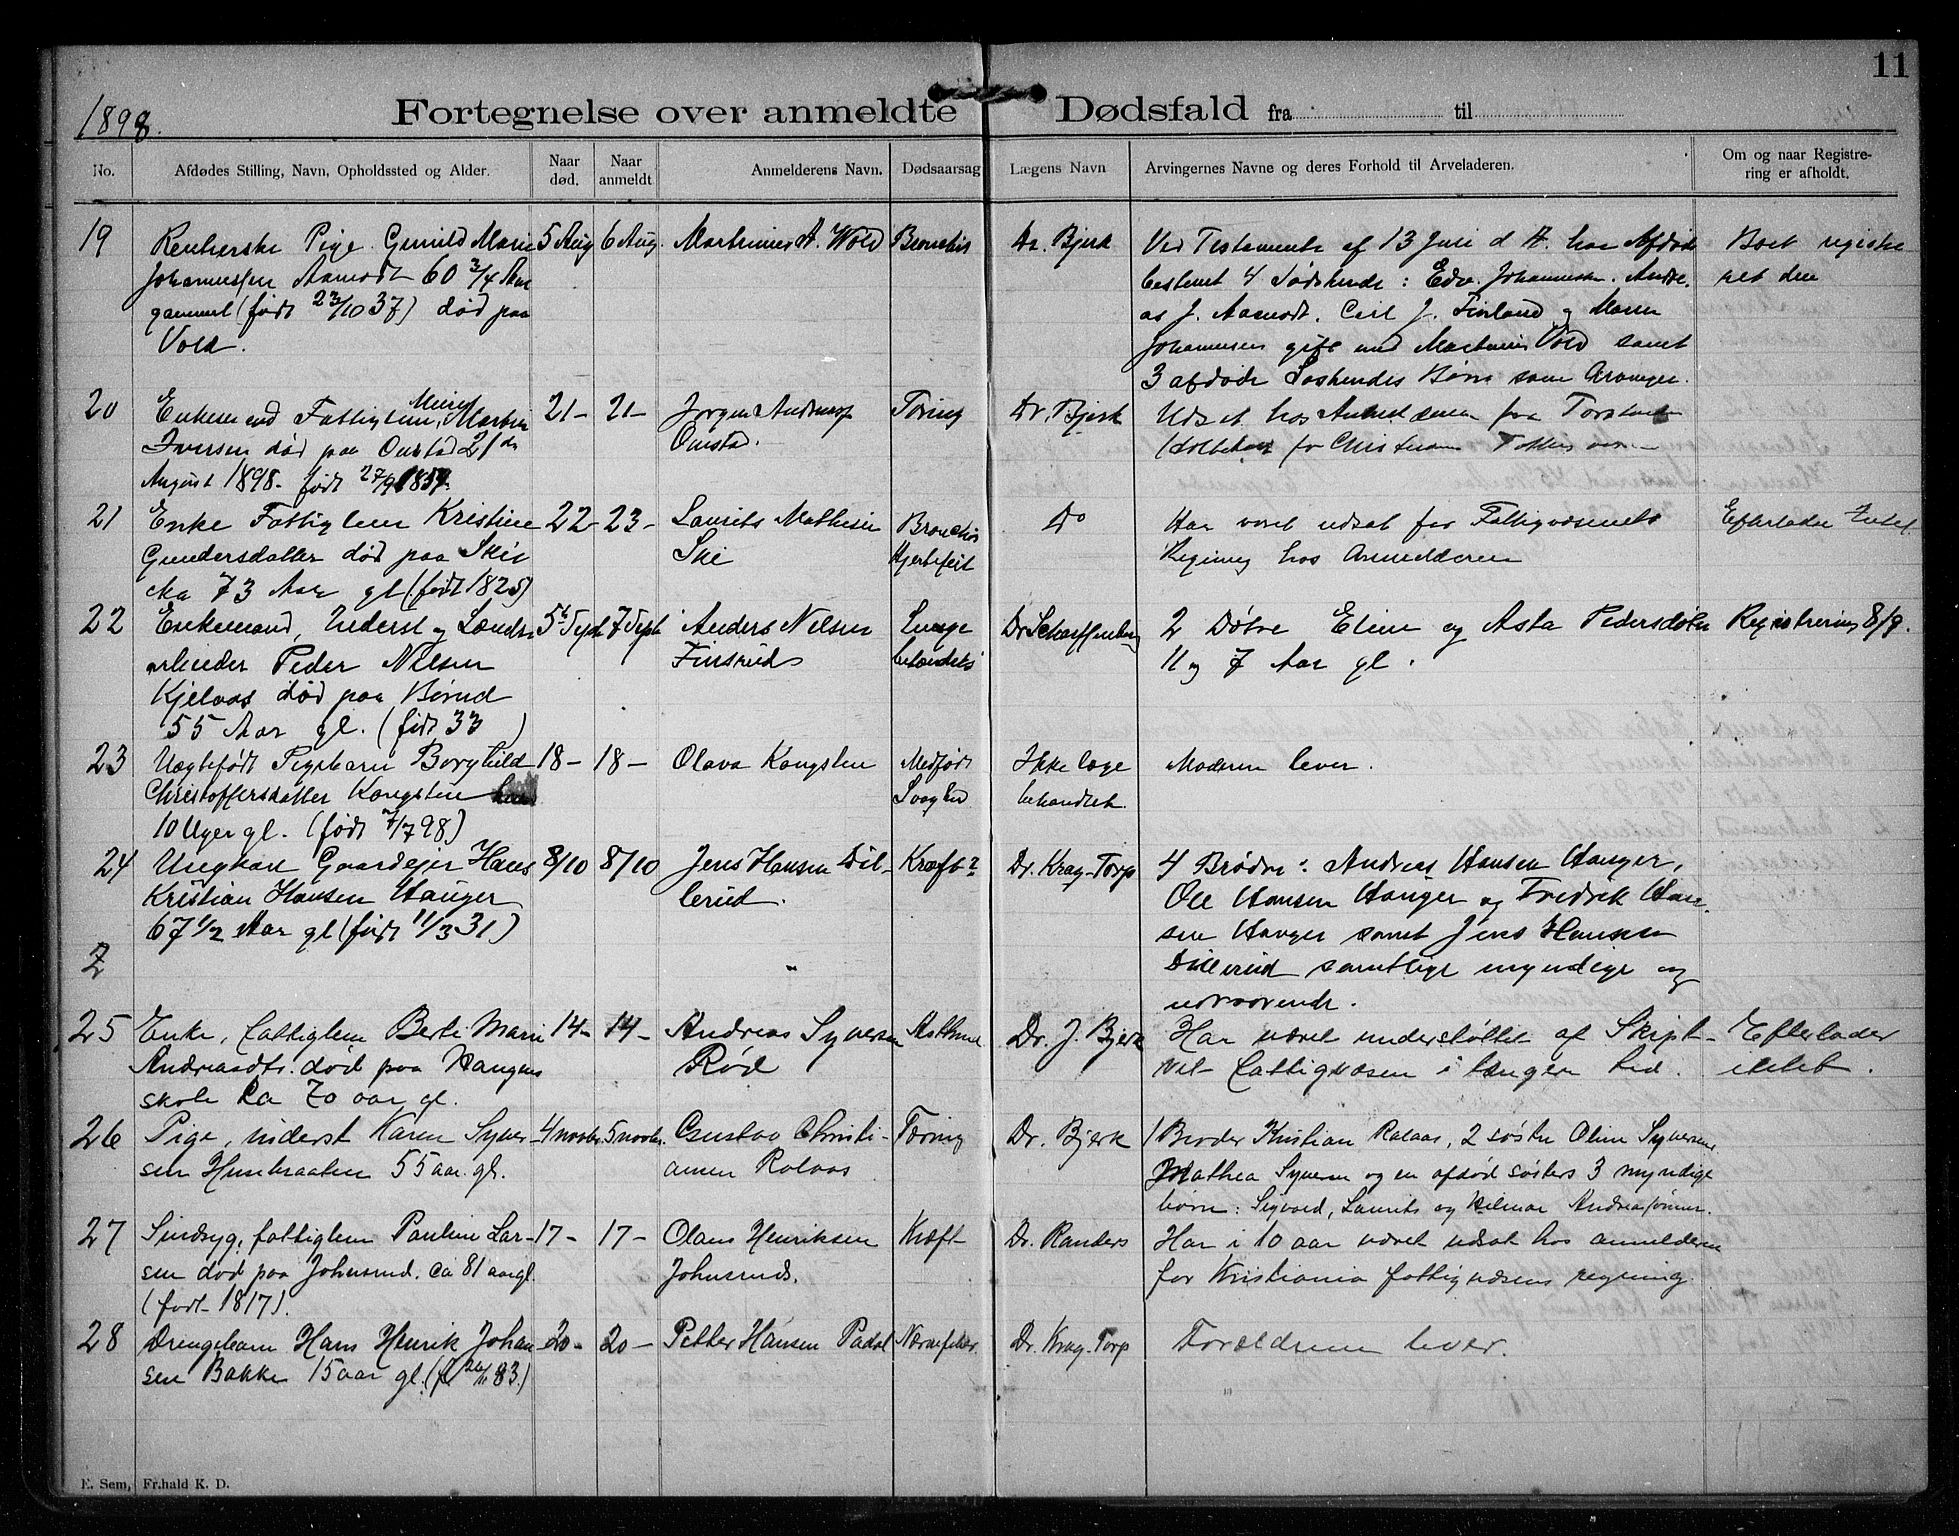 11
1898.
Fortegnelse over anmeldte Dødsfald fra til
No.
Afdødes Stilling, Navn, Opholdssted og Alder.
Naar død.
Naar anmeldt
Anmelderens Navn.
Dødsaarsag
Lægens Navn
Arvingernes Navne og deres Forhold til Arveladeren.
Om og naar Registre-
ring er afholdt.
19 Pige Gunild Marie 5 Aug 6 Aug. Martinius A. Wold Bronchit Dr. Bjerk Ved Testamente af 13 Juni d A. har Afdøde Boet registe
Johannessen Aamodt 60 3/4 Aar bestemt 4 Sødskende: Edv. Johannessen. Andre. ret den
gammel (født 23/10 37) død paa as J. Aamodt. Carl J. Finland og Maren
Vold. Johannesen gift med Martinius Vold samt
3 afdøde Søskendes Børn som Arvinger.
20 Enkemand Fattiglem, Martin 21- 21- Jørgen Onstad. Tæring Dr. Bjerk Udsat hos
Iversen død paa Onstad 21de for
August 1898. født 27/9 1834.
21 Enke Fattiglem Kristine 22- 23- Laurits Mathisen Bronchit Do Har været udsat for Fattigvæsenets Efterlader Intet
Gundersdatter død paa Ski Ski Hjertefeil Regning hos Anmelderen
cka 73 Aar gl (født 1825)
22 Enkemand, Inderst og Lands- 5te Septb 7 Septb Anders Nilsen Lunge Dr Scharffenberg 2 Døtre Eline og Asta Pedersdøtre Registrering 8/9.
arbeider Peder Nilsen Finsrud betændelse 11 og 7 Aar gl.
Kjelaas død paa Børud
55 Aar gl. (født 33 )
23 Uægtefødt Pigebarn Borghild 18- 18- Olava Kongsten Medfødt Ikke læge Moderen lever.
Christoffersdatter Kongsten Svaghed behandlet.
10 Uger gl. (født 7/7 98)
24 Ungkarl Gaardejer Hans 8/10 8/10 Jens Hansen Dil- Kræft Dr. Krag-Torp 4 Brødre: Andreas Hansen Hauger,
Kristian Hansen Hauger lerud. Ole Hansen Hauger og Fredrik Han-
67 1/2 Aar gl (født 11/3 31) sen Hauger samt Jens Hansen
2 Dillerud samtlige myndige og
nærværende.
25 Enke, fattiglem Berte Marie 14- 14- Andreas Syversen Asthma Dr. J. Bjerk Har været understøttet af Skipt- Efterlader
Andreasdtr. død paa Haugens Rød vet fattigvæsen i længere tid. intet.
skole ca 70 aar gl.
26 Pige, inderst Karen Syver- 4 novbr. 5 novbr. Gustav Christi- Tæring Dr. Bjerk 1 Broder Kristian Rolaas, 2 søstre Oline Syversen
sen Hunbraaten 55 aar gl. ansen Rolaas Mathea Syversen og en afdød søsters 3 myndige
børn: Sigvard, Laurits og Hilmar Andreassønner.
27 Sindsyg, fattiglem Pauline Lar- 17- 17- Olaus Henriksen Kræft Dr. Randers Har i 10 aar været udsat hos anmelderen
sen død paa Johnsrud. ca 81 aar gl. Johnsrud. for Kristiania fattigvæsens regning.
(født 1817).
28 Drengebarn Hans Henrik Johan 20- 20- Petter Hansen Padøl Nervefeber Dr. Krag-Torp Forældrene lever.
sen Bakke 15 aar gl. (f. 26/11 83.)
E. Sem, Fr.hald K. D.